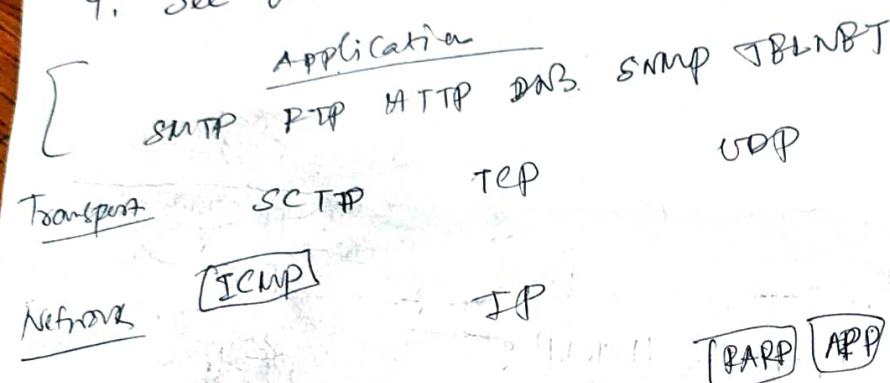 Application
SMTP FTP HTTP DNS. SNMP TELNET
Transport SCTP TCP UDP
Network ICMP IP
RARP ARP